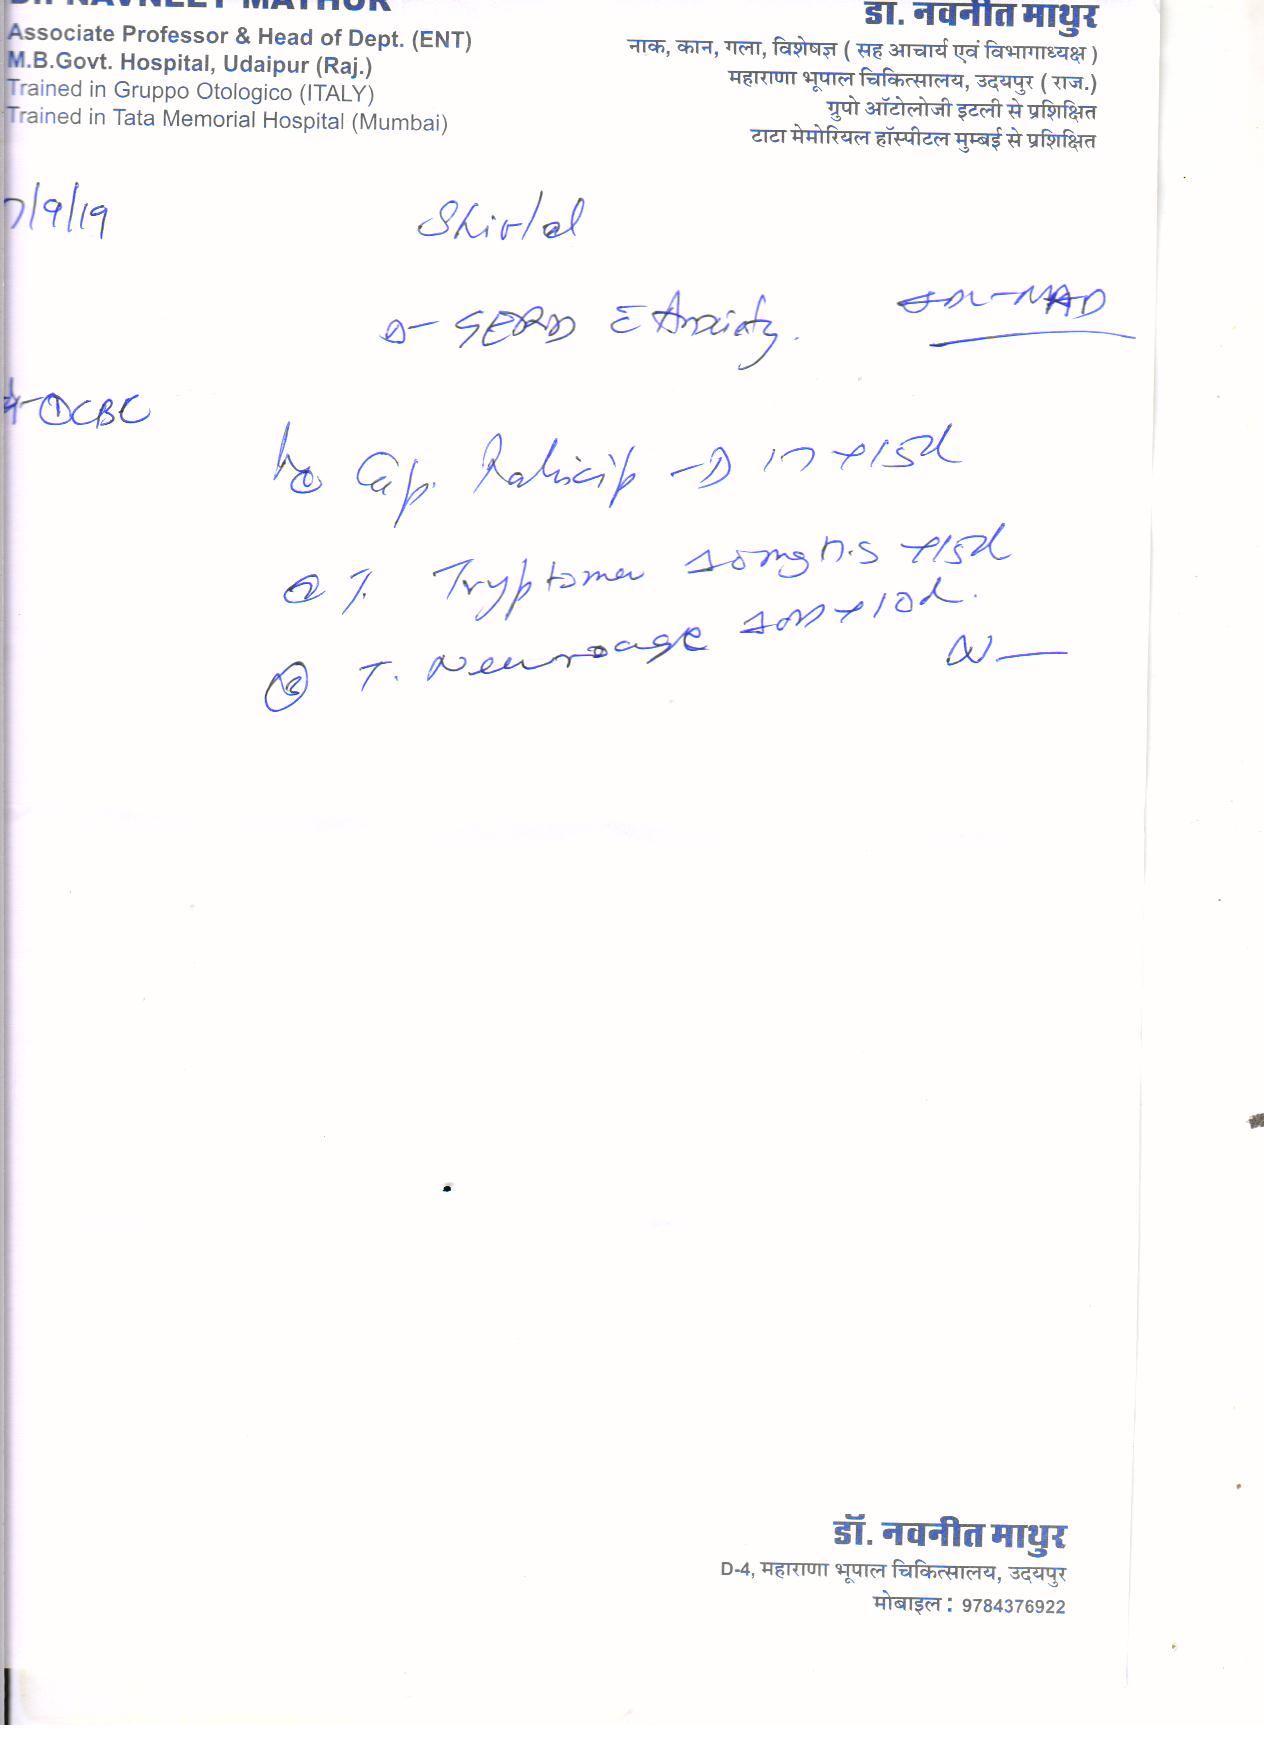 Dr. NAVNEET MATHUR
Associate Professor & Head of Dept. (ENT)
M.B.Govt. Hospital, Udaipur (Raj.)
Trained in Gruppo Otologico (ITALY)
Trained in Tata Memorial Hospital (Mumbai)
डा. नवनीत माथुर
नाक, कान, गला, विशेषज्ञ ( सह आचार्य एवं विभागाध्यक्ष )
महाराणा भूपाल चिकित्सालय, उदयपुर ( राज.)
ग्रुपो ऑटोलोजी इटली से प्रशिक्षित
टाटा मेमोरियल हॉस्पीटल मुम्बई से प्रशिक्षित
7/9/19
Shivlal
GERD c Anxiety.
NAD
① CBC
① Cap. Rabicip-D x 15d
② T. Tryptomer 10mg h.s x 15d
③ T. Neuroage 1 OD x 10d.
डॉ. नवनीत माथुर
D-4, महाराणा भूपाल चिकित्सालय, उदयपुर
मोबाइल : 9784376922